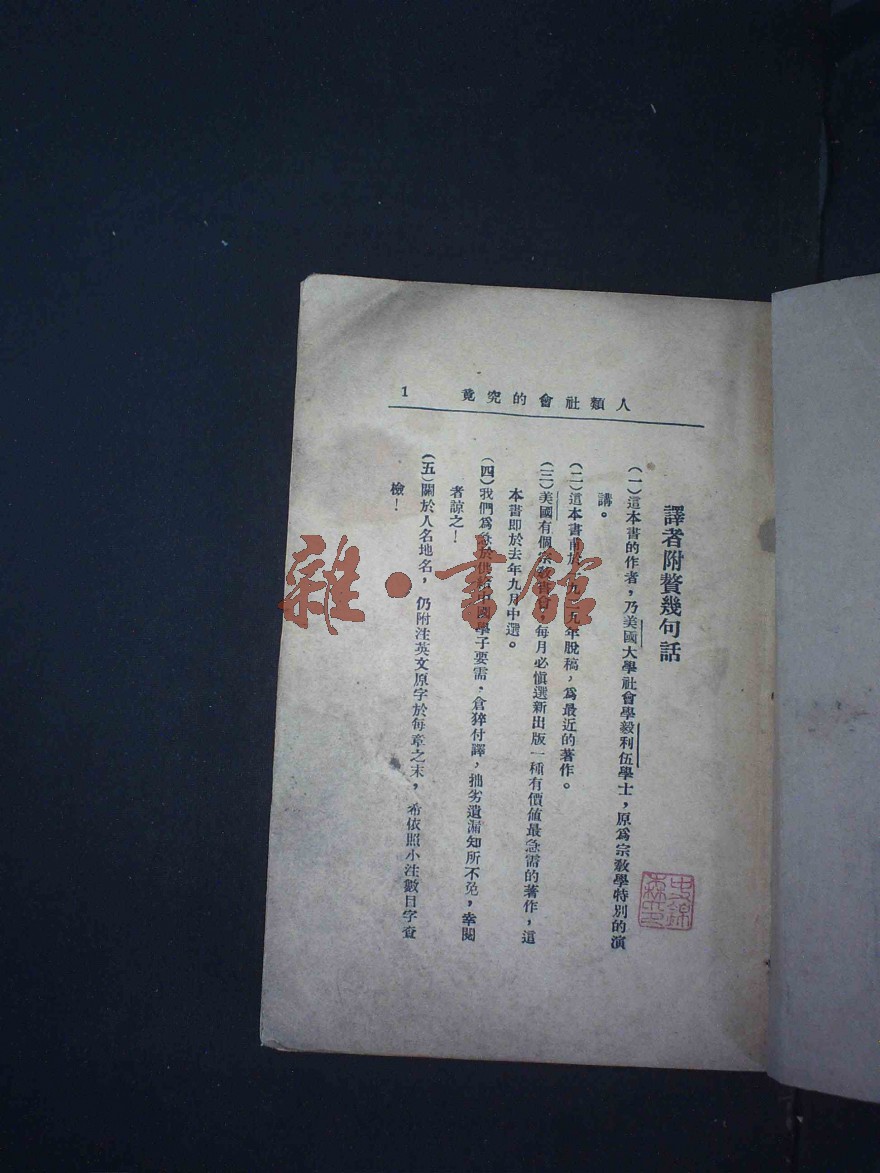 人類社會的究竟 1
譯者附贅幾句話
(一)這本書的作者，乃美國大學社會學毅利伍學士，原爲宗教學特別的演
講。
(二)這本書甫於一九一九年脫稿，爲最近的著作。
(三)美國有個宗教書會，每月必愼選新出版一種有價值最急需的著作，這
本書即於去年九月中選。
(四)我們爲急於供給中國學子要需，倉猝付譯，拙劣遺漏知所不免，幸閱
者諒之！
(五)關於人名地名，仍附注英文原字於每章之末，希依照小注數目字查
檢！
雜·書館